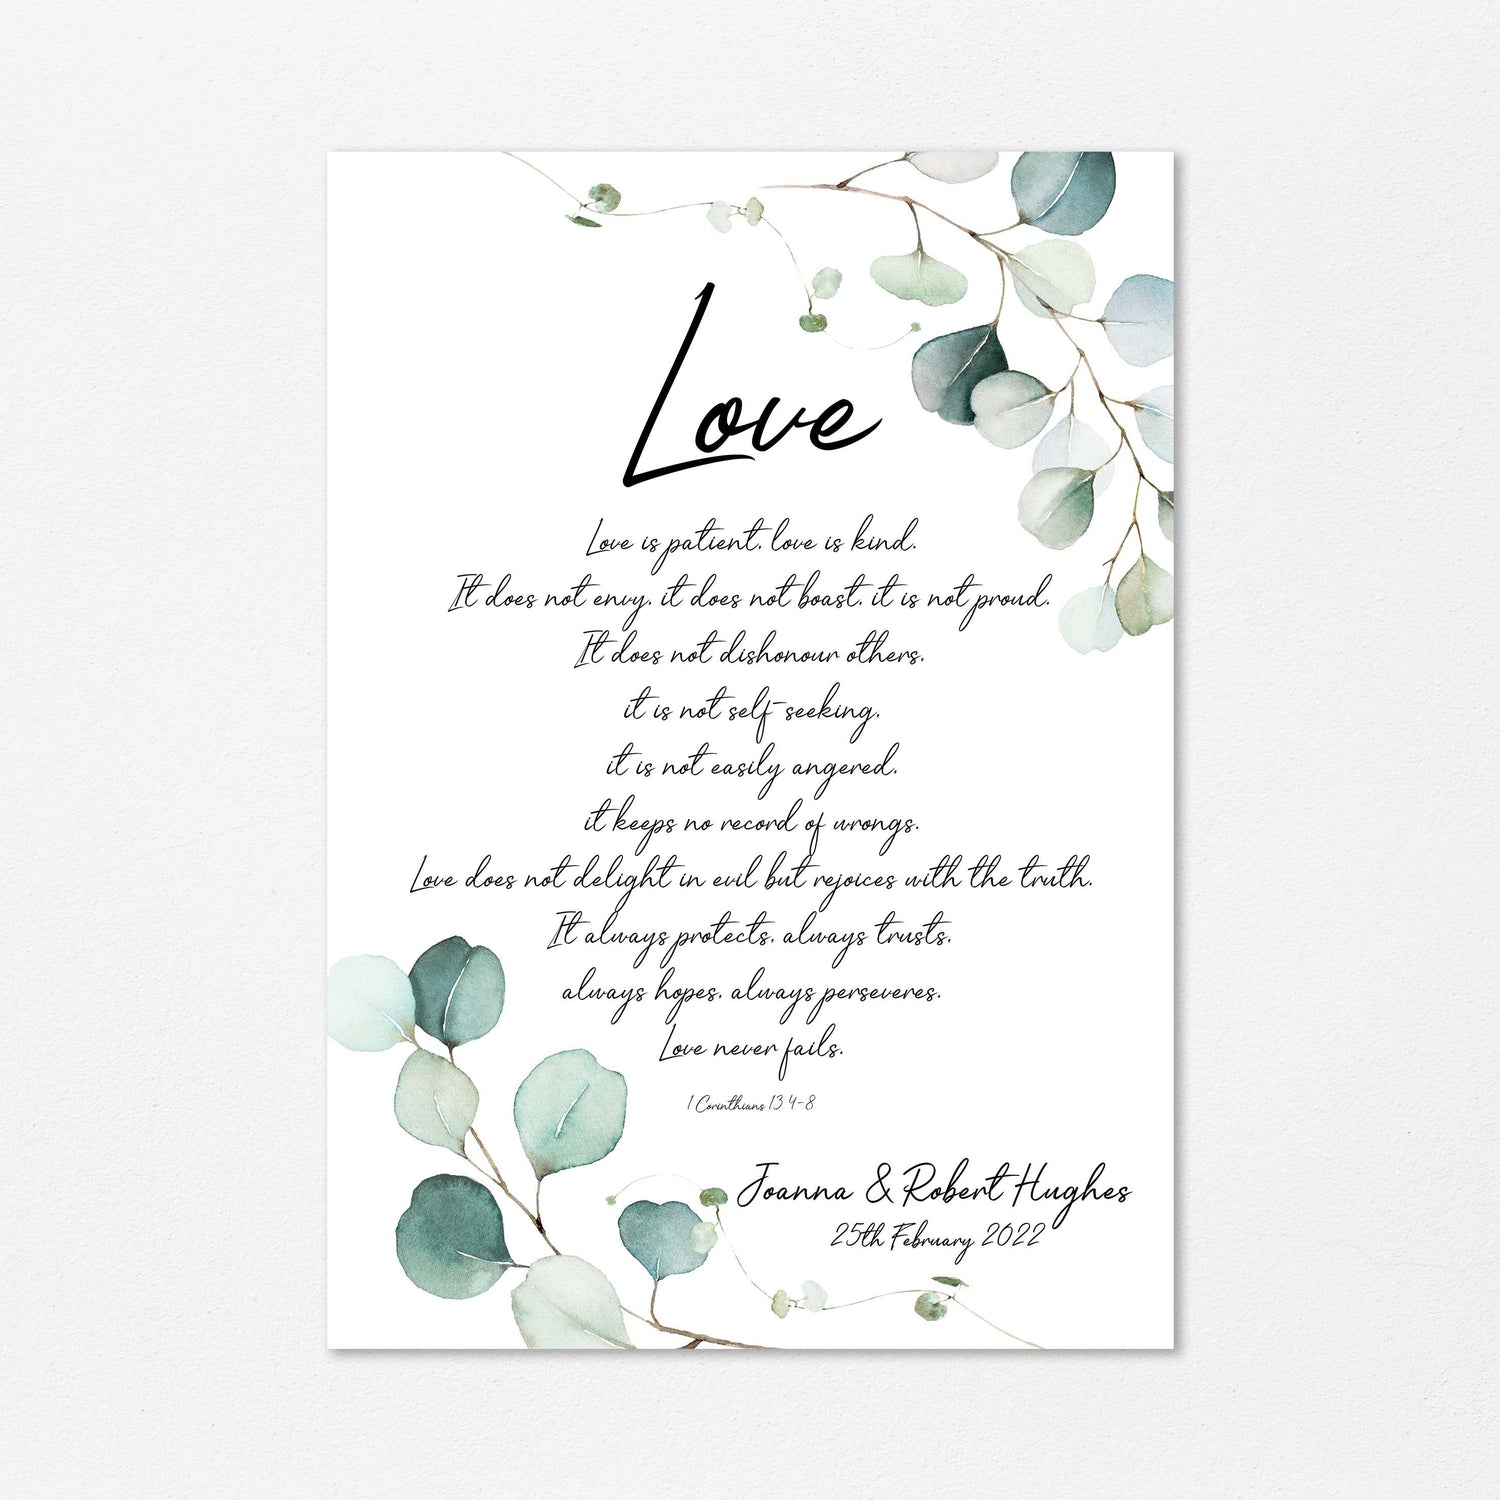 Love
Love is patient, love is kind.
It does not envy, it does not boast, it is not proud.
It does not dishonour others,
it is not self-seeking,
it is not easily angered,
it keeps no record of wrongs.
Love does not delight in evil but rejoices with the truth.
It always protects, always trusts,
always hopes, always perseveres.
Love never fails.
1 Corinthians 13 4-8
Joanna & Robert Hughes
25th February 2022